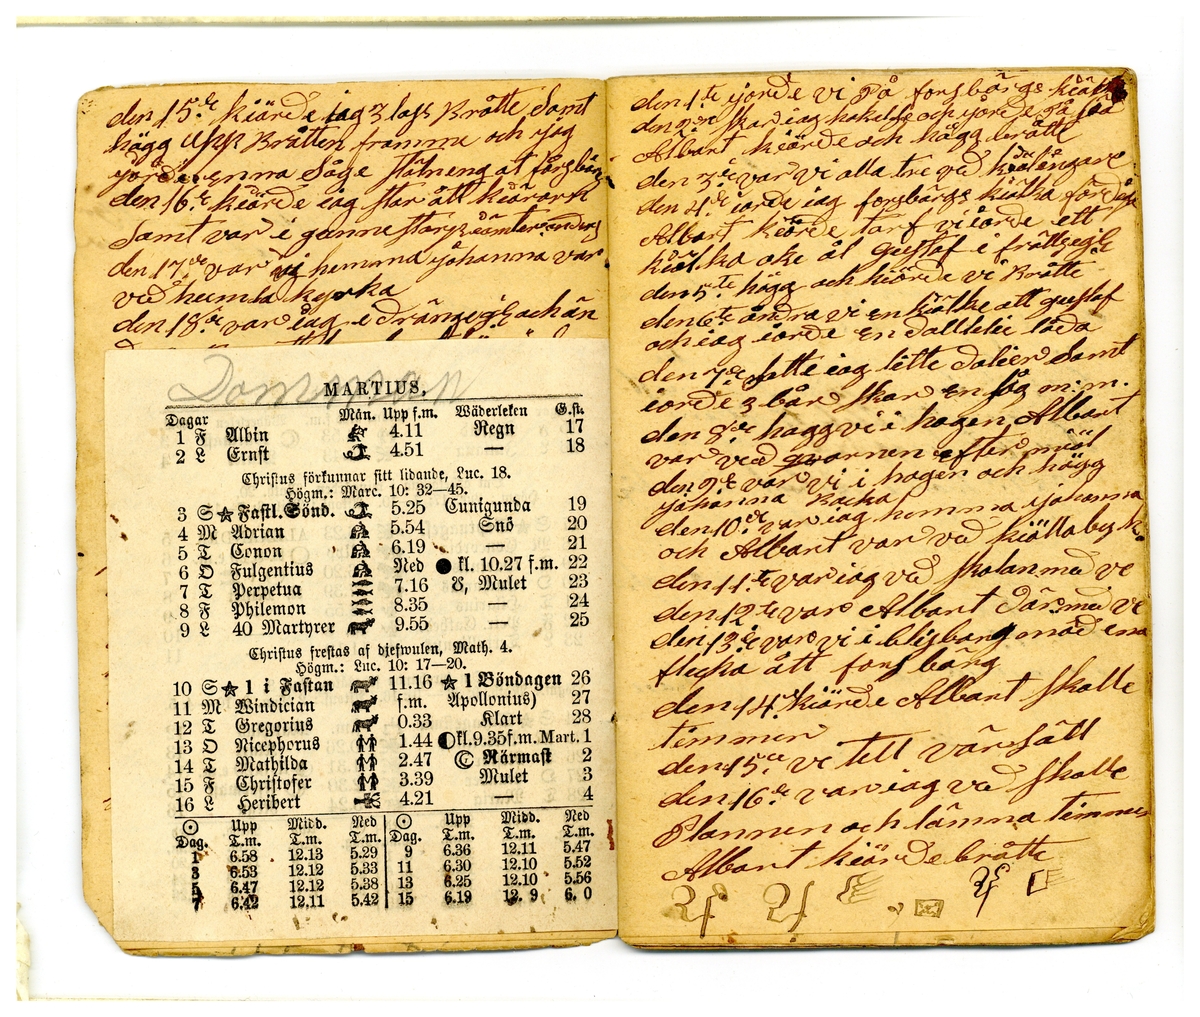 den 15de kiörde iag 3 lass Bråtte Samt
högg upp Bråtten framme och jag
den 16de kiörde iag
Samt var i
den 17de var hemma johanna var
ved humla kyrka
den 18de var iag i drängegie och än
Domman
MARTIUS.
Dagar Mån. Upp f.m. Wäderleken G.st.
1 F Albin 4.11 Regn 17
2 L Ernst 4.51 — 18
Christus förkunnar sitt lidande, Luc. 18.
Högm.: Marc. 10: 32—45.
3 S Fastl. Sönd. 5.25 Cunigunda 19
4 M Adrian 5.54 Snö 20
5 T Conon 6.19 — 21
6 O Fulgentius Ned ● kl. 10.27 f.m. 22
7 T Perpetua 7.16 ☋, Mulet 23
8 F Philemon 8.35 — 24
9 L 40 Martyrer 9.55 — 25
Christus frestas af djefwulen, Math. 4.
Högm.: Luc. 10: 17—20.
10 S 1 i Fastan 11.16 1 Böndagen 26
11 M Windician f.m. Apollonius) 27
12 T Gregorius 0.33 Klart 28
13 O Nicephorus 1.44 kl.9.35 f.m. Mart. 1
14 T Mathilda 2.47 Närmast 2
15 F Christofer 3.39 Mulet 3
16 L Heribert 4.21 — 4
☉ Upp Midd. Ned ☉ Upp Midd. Ned
Dag. T.m. T.m. T.m. Dag. T.m. T.m. T.m.
1 6.58 12.13 5.29 9 6.36 12.11 5.47
3 6.53 12.12 5.33 11 6.30 12.10 5.52
5 6.47 12.12 5.38 13 6.25 12.10 5.56
7 6.42 12.11 5.42 15 6.19 12. 9 6. 0
den 1te jorde vi på forsbärgs
den 2dre skar iag hakelse och jorde på
Albart kiörde och högg bråtte
den 3de var vi alla tre ved
den 4de jorde iag forsbärgs
Albart kiörde tårf vi jorde ett
kiälka oke ål Gustaf i
den 5te högg och kiörde vi Bråtte
den 6te ändra vi en kiälke att gustaf
och iag jorde En låda
den 7de satte iag litte Samt
jorde 3 bår skar En såg m: m.
den 8de hogg vi i hagen, Albart
var ved qvarnen efter miöl
den 9de var vi i hagen och högg
johanna Backa
den 10de var iag hemma johanna
och Albart var ved kiälla by k.
den 11te var iag ved Skolan med ve
den 12te var Albart Där med ve
den 13de var vi i blisbärg med ena
flicka ått forsbärg
den 14de kiörde Albart skolle
timmer
den 15de vi till vårsått
den 16de var iag ved skolle
Plannen och lämna timmer
Albart kiörde bråtte